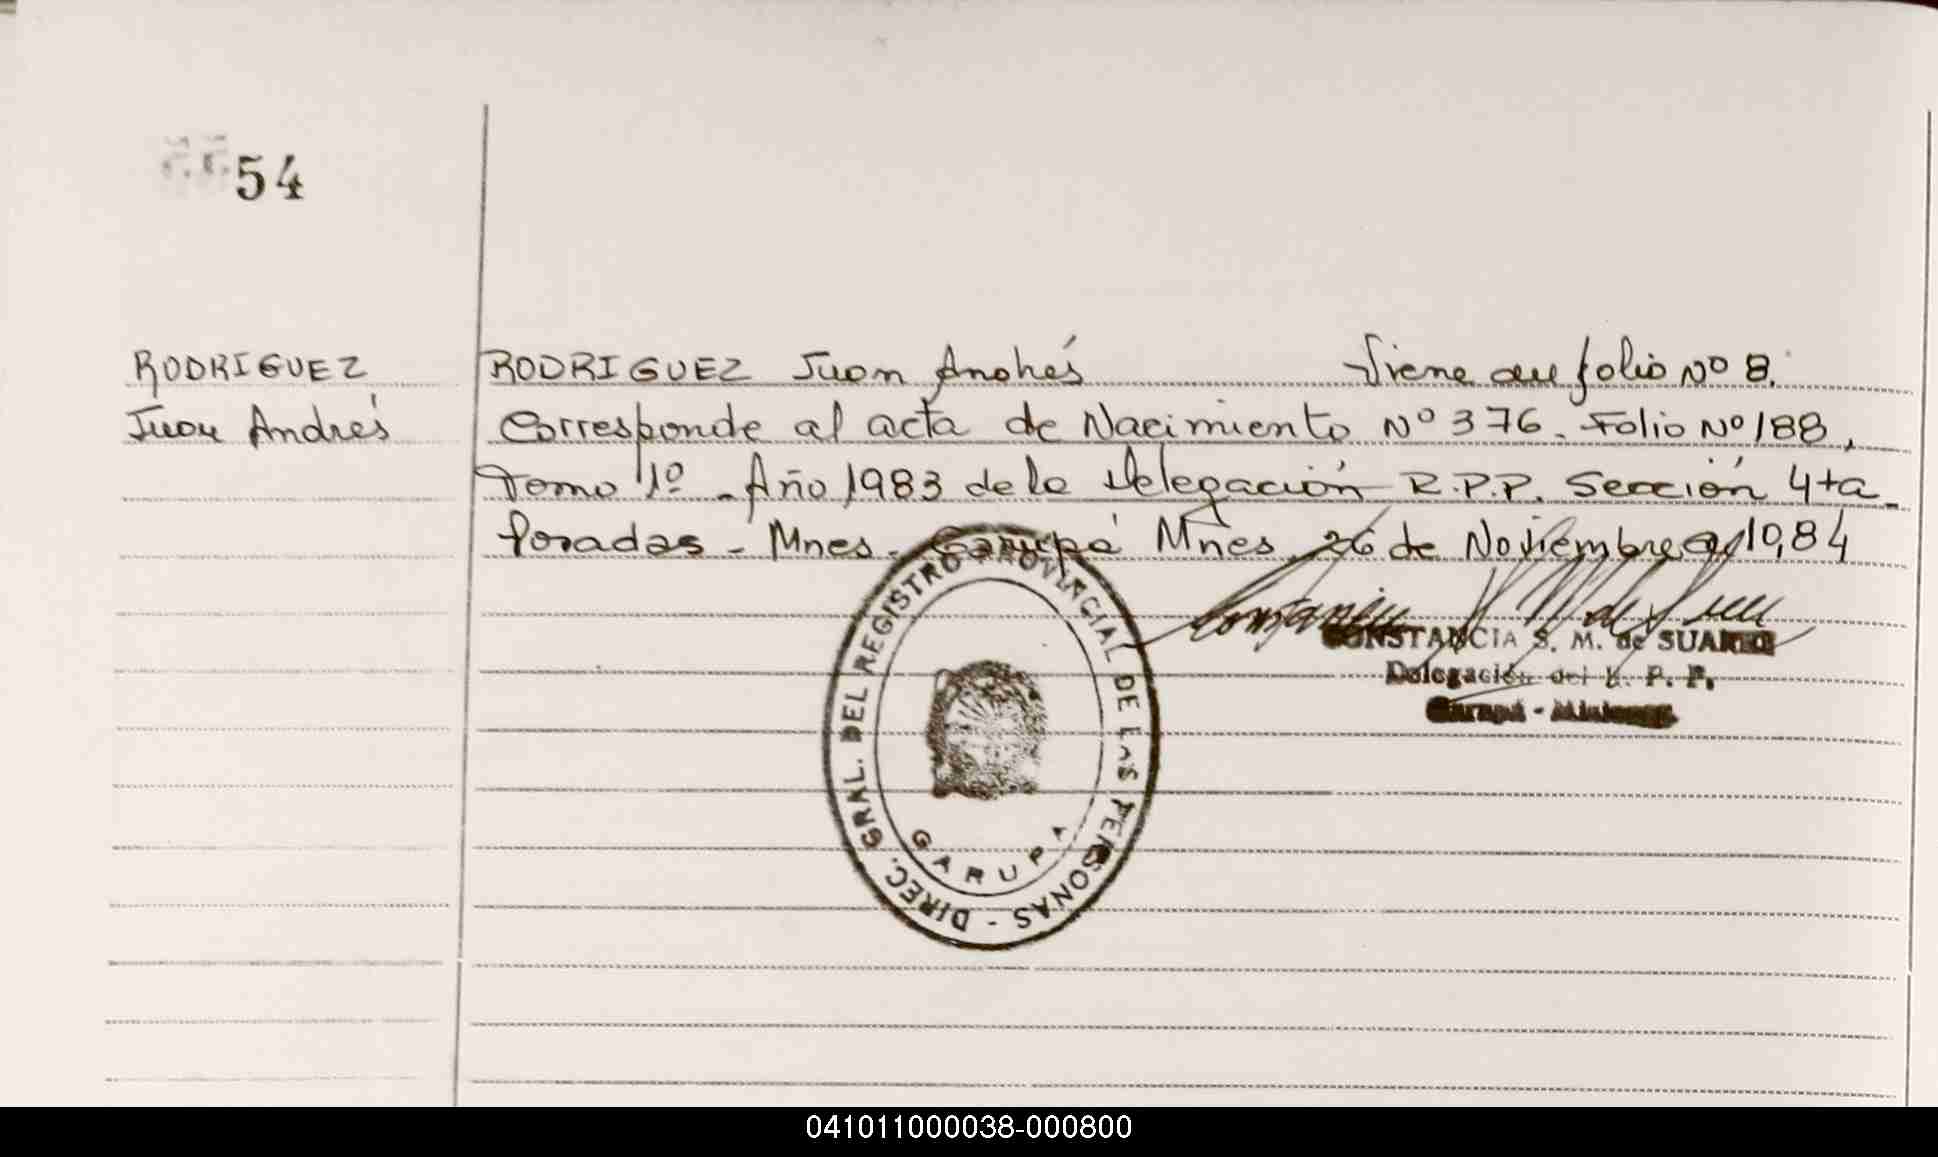 54
RODRIGUEZ
Juan Andrés
RODRIGUEZ Juan Andrés Viene del folio Nº 8.
Corresponde al acta de Nacimiento Nº 376. Folio Nº 188,
Tomo 1º - Año 1983 de la Delegación R.P.P. Sección 4ta
Posadas - Mnes. Garupá Mnes. 26 de Noviembre 1984
CONSTANCIA S. M. de SUAREZ
Delegación del R. P. P.
Garupá - Misiones
DIREC. GRAL. DEL REGISTRO PROVINCIAL DE LAS PERSONAS -
GARUPA
041011000038-000800